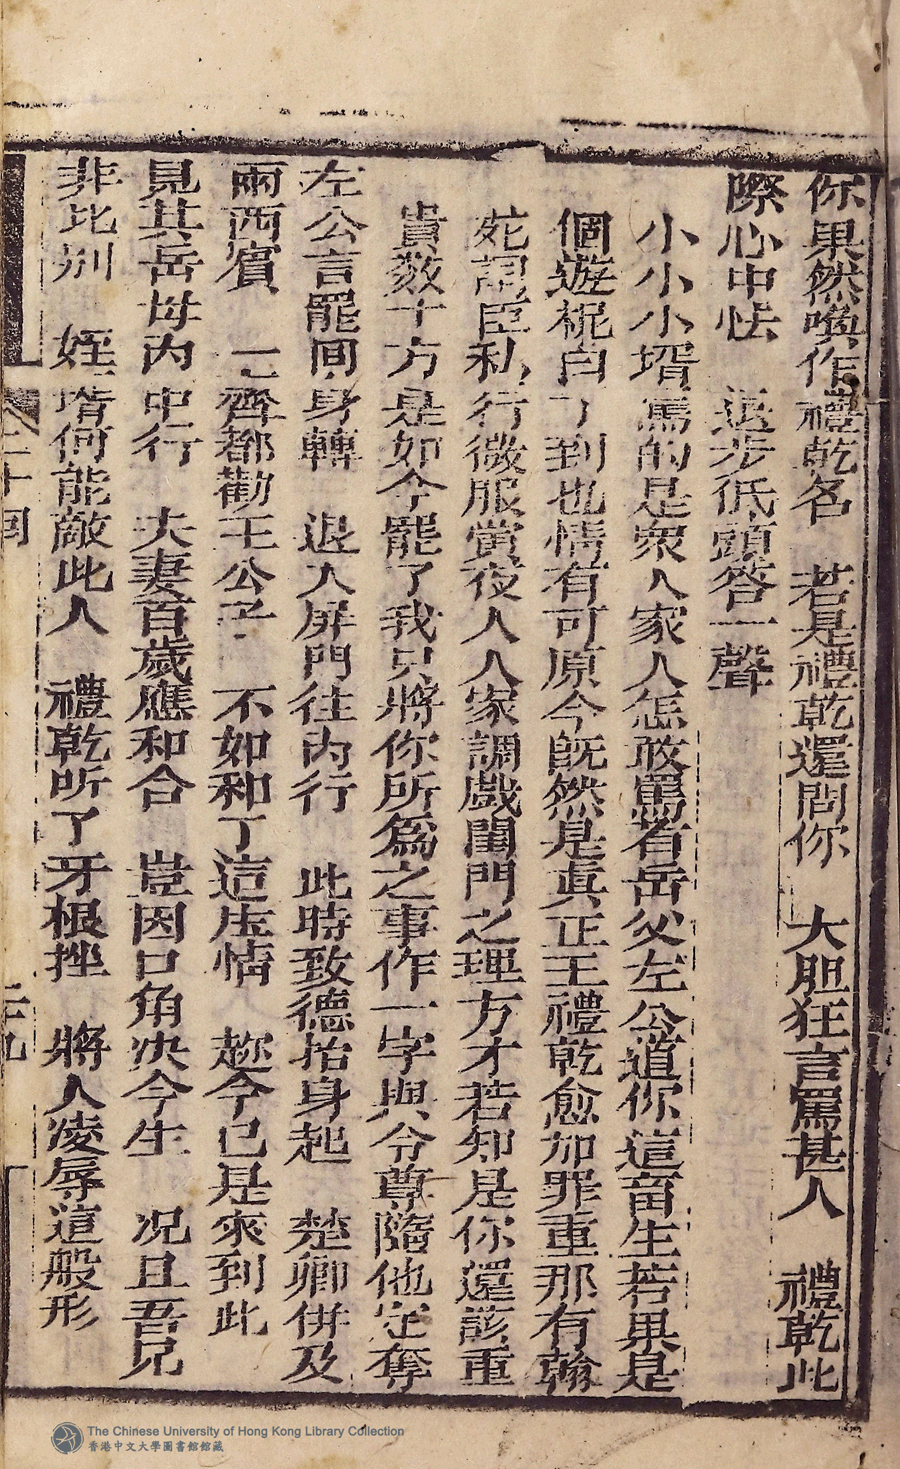 你果然喚作禮乾名　若是禮乾還問你　大胆狂言罵甚人　禮乾此
際心中怯　退步低頭答一聲
小小小壻罵的是衆人家人怎敢罵着岳父左公道你這畜生若果是
個遊棍白丁到也情有可原今既然是真正王禮乾愈加罪重那有翰
苑詞臣私行微服黉夜入人家調戲閨門之理方才若知是你還該重
責数十方是如今罷了我只將你所爲之事作一字與令尊隨他定奪
左公言罷間身轉　退入屏門往內行　此時致德抬身起　楚卿併及
兩西賓　一齊都勸王公子　不如和了這庒情　趂今已是來到此
見其岳母內中行　夫妻百歲應和合　豈因口角决今生　况且吾兄
非比别　姪壻何能敵此人　禮乾听了牙根挫　將人凌辱這般形
二十回